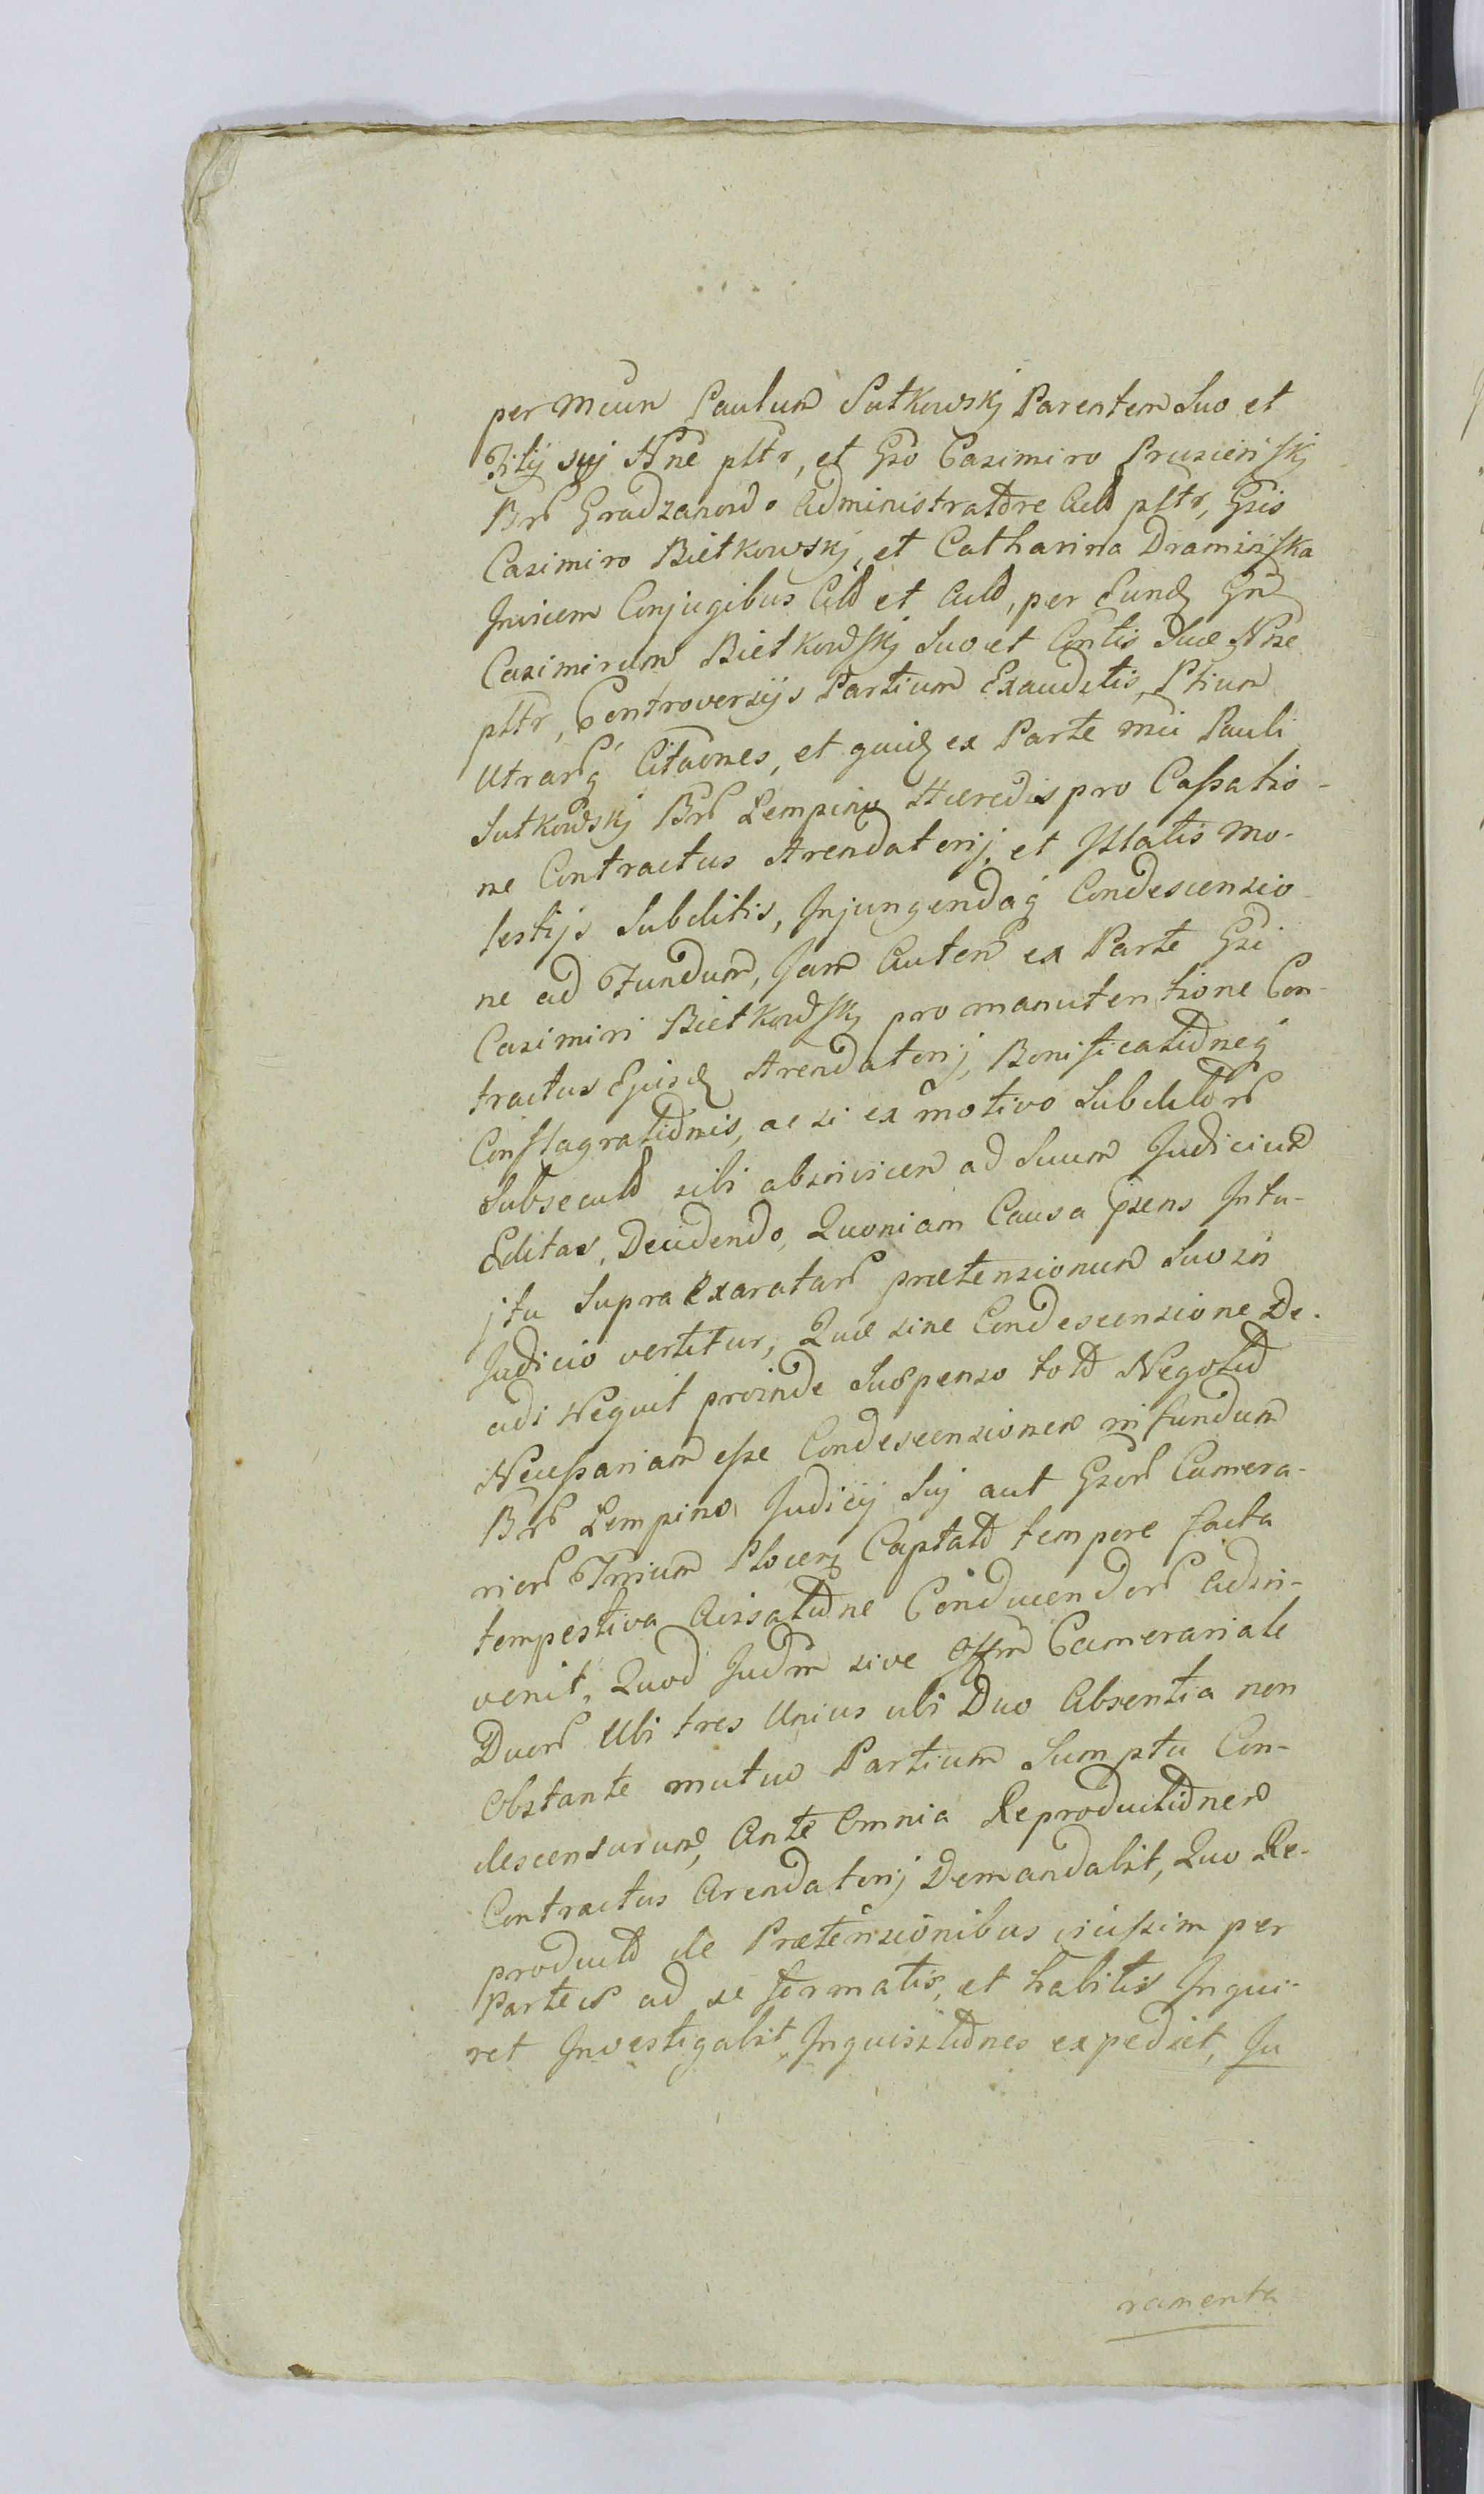 per Mcum Paulum Sutkowskj Parentem Suo et
Filij suj Nne pltr, et Gso Casimiro Prusienskj
Brũ Gradzanowo Administratõre Actõ pltr, Gsis
Casimiro Bietkowskj, et Catharina Draminska
Jnvicem Conjugibus Citõ et Actõ, per Eundẽ Gnũ
Casimirum Bietkowskj Suo et Cortis Suæ Nne
pltr, Controversijs Partium Exauditis, Ptium
Utrarq́ Citaõnes, et quidẽ ex Parte Mci Pauli
Sutkowskj Brũ Lempino Hæredis pro Cassatio-
ne Contractus Arendatorij, et Jllatis Mo-
lestijs Subditis, Jnjungendaq́ Condescensio
ne ad Fundum, Jam Autem ex Parte Gsi
Casimiri Bietkowskj pro manutentione Con-
tractus Ejusdẽ Arendatorij, Bonificatiõneq́
Conflagratiõnis, ac si ex motivo Subditõrũ
Subsecutõ sibi abinvicem ad Suum Judicium
Editas, Decidendo, Quoniam Causa p̃sens Jntu-
jtu Supra Exaratarũ prætensionum Suo in
Judicio vertitur, Quæ sine Condescensione De-
cidi Nequit proinde Suspenso totõ Negotiõ
Necessariam esse Condescensionem in fundum
Brũ Lempino Judicij Suj aut Gsorũ Camera-
riorũ Trrium Plocen̄ Captatõ tempore facta
tempestiva Avisatiõne Conducendorũ Adin-
venit, Quod Judm̃ sive Offm̃ Camerariale
Duorũ Ubi tres Unius ubi Duo Absentia non
Obstante mutuo Partium Sumptu Con-
descensurum, Ante Omnia Reproductiõnem
Contractus Arendatorij Demandabit, Quo Re-
productõ de Prætensionibus vicissim per
Partes ad se formatis, et habitis Jnqui-
ret Jnvestigabit, Jnquisitiõnes expediet, Ju
ramenta